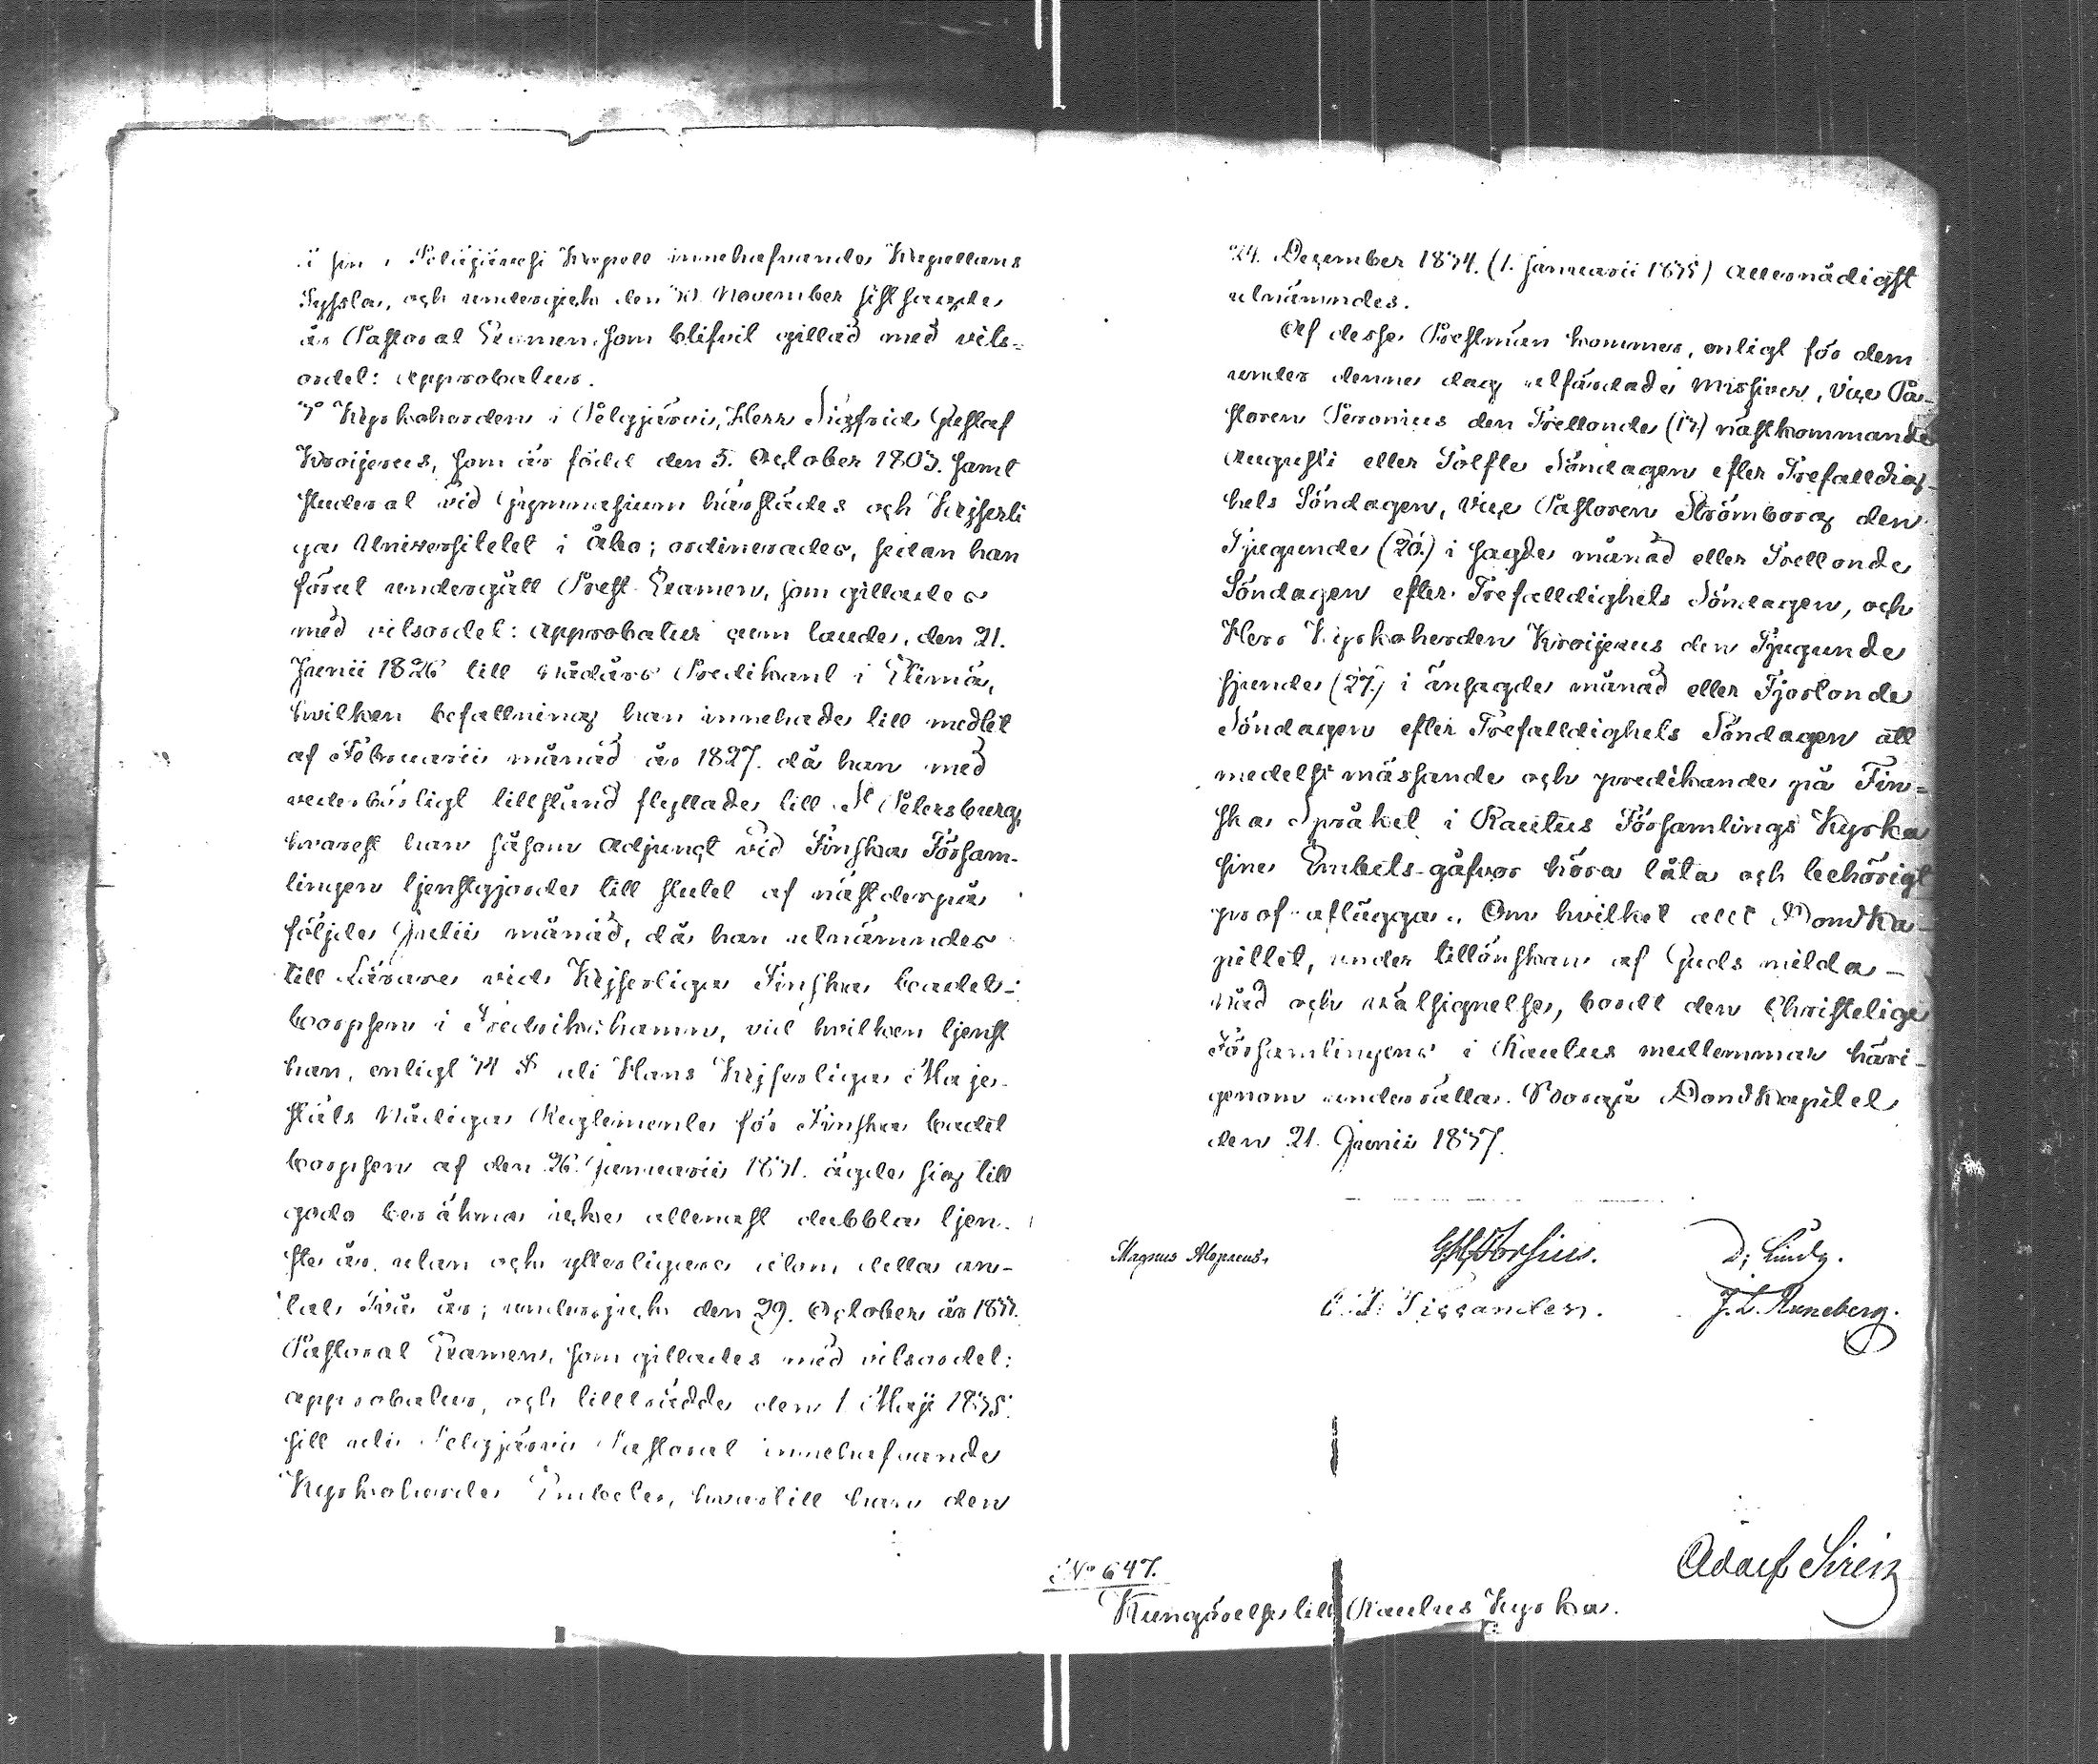 i sin i Pelisjärvi Kapell innehafvande Kapellans
Syssla, och undergick den 30. November sistsagde
år Pastoral Examen, som blifvit gillad med vits-
ordet: approbatur.
3º Kyrkoherden i Pelgjärvi, Herr Sigfrid Gustaf
Kroijerus, som är född den 5. October 1803. samt
studerat vid Gymnasium härstädes och Kejserli
ga Universitetet i Åbo; ordinerades, sedan han
förut undergått Prest-Examen, som gillades
med vitsordet: approbatur cum laude, den 21.
Junii 1826 till nådårs Predikant i Elimä,
hvilken befattning han innehade till medlet
af Februarii månad år 1827. då han med
vederbörligt tillstånd flyttade till St Petersburg,
hvarest han såsom Adjunct vid Finska Försam-
lingen tjenstgjorde till slutet af nästderpå
följde Julii månad, då han utnämndes
till Lärare vid Kejserliga Finska Cadet-
Corpsen i Fredrikshamn, vid hvilken tjenst
han, enligt 74 § uti Hans Kejserliga Maje-
stäts Nådiga Reglemente för Finska Cadet
Corpsen af den 26. Januarii 1831. ägde sig till
godo beräkna icke allenast dubbla tjen-
ste år, utan och ytterligare utom detta an-
tal, två år; undergick den 29. October år 1833.
Pastoral Examen, som gillades med vitsordet:
approbatur, och tillträdde den 1 Maji 1835.
sitt uti Pelgjärvi Pastorat innehafvande
Kyrkoherde Embete, hvartill han den
24. December 1834. (1. Januarii 1835) allernådigst
utnämndes.
Af desse Prestmän kommer, enligt för dem
under denne dag utfärdade Missiver, Vice Pa-
storen Peronius den Trettonde (13.) nästkommande
Augusti eller Tolfte Söndagen efter Trefalldig-
hets Söndagen, Vice Pastoren Strömborg den
Tjugunde (20.) i sagde månad eller Trettonde
Söndagen efter Trefalldighets Söndagen, och
Herr Kyrkoherden Kroijerus den Tjugunde
sjunde (27.) i ansagde månad eller Fjortonde
Söndagen efter Trefalldighets Söndagen att
medelst mässande och predikande på Fin-
ska Språket i Rautus Församlings Kyrka
sine Embets-gåfvor höra låta och behörigt
prof aflägga. Om hvilket allt DomKa-
pittlet, under tillönskan af Guds milda
nåd och välsignelse, bordt den Christelige
Församlingens i Rautus medlemmar häri-
genom underrätta. Borgå DomKapitel,
den 21. Junii 1837.
Magnus Alopaeus.
D: Lundg.
J. L. Runeberg.
No 647.
Kungörelse till Rautus Kyrka.
Adolf Sirén